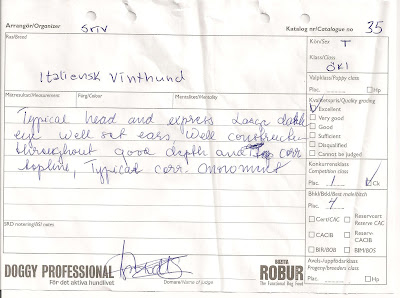 Arrangör/Organizer SRIV Katalog nr/Catalogue no 35
Ras/Breed Kön/Sex T
Klass/Class ÖKL
Italiensk Vinthund
Valpklass/Puppy class
Plac. Hp
Måttresultat/Measurement Färg/Colour Mentalitet/Mentality
Kvalitetspris/Quality grading
Excellent
Very good
Good
Sufficient
Disqualified
Cannot be judged
Typical head and express Large dark
eye well set ears, Well construcktion
throughout good depth and corr
topline, Typical corr.
Konkurrensklass
Competition class
Plac. 1 Ck
Bhkl/Btkl/Best male/bitch
Plac. 4
Cert/CAC
Reservcert
Reserve CAC
CACIB
Reserv-
CACIB
BIR/BOB
BIM/BOS
SRD notering/JSI notes
Avels-/uppfödarklass
Progeny/breeders class
Plac. Hp
DOGGY PROFESSIONAL
För det aktiva hundlivet
Domare/Name of judge
ROBUR
The Functional Dog Food